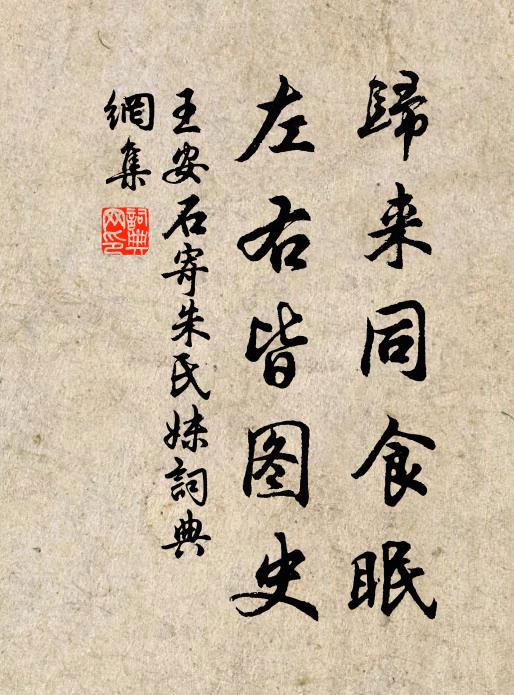 歸来同食眠
左右皆图史
王安石寄朱氏妹詞典
網集
詞典网印